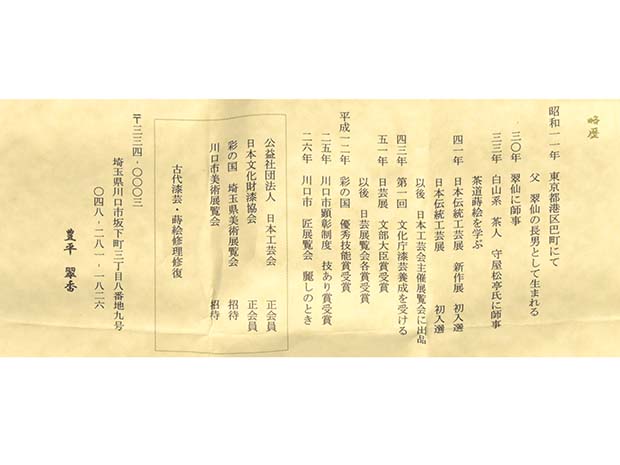 略歴
昭和一一年 東京都港区巴町にて
父 翠仙の長男として生まれる
三〇年 翠仙に師事
三三年 白山系 茶人 守屋松亭氏に師事
茶道蒔絵を学ぶ
四一年 日本伝統工芸展 新作展 初入選
日本伝統工芸展 初入選
以後 日本工芸会主催展覧会に出品
四三年 第一回 文化庁漆芸養成を受ける
五二年 日芸展 文部大臣賞受賞
以後 日芸展覧会各賞受賞
平成一二年 彩の国 優秀技能賞受賞
二五年 川口市顕彰制度 技あり賞受賞
二六年 川口市 匠展覧会 麗しのとき
公益社団法人 日本工芸会 正会員
日本文化財漆協会 正会員
彩の国 埼玉県美術展覧会 招待
川口市美術展覧会 招待
古代漆芸・蒔絵修理修復
〒三三四-〇〇〇三
埼玉県川口市坂下町三丁目八番地九号
〇四八-二八一-一八二六
豊平 翠香